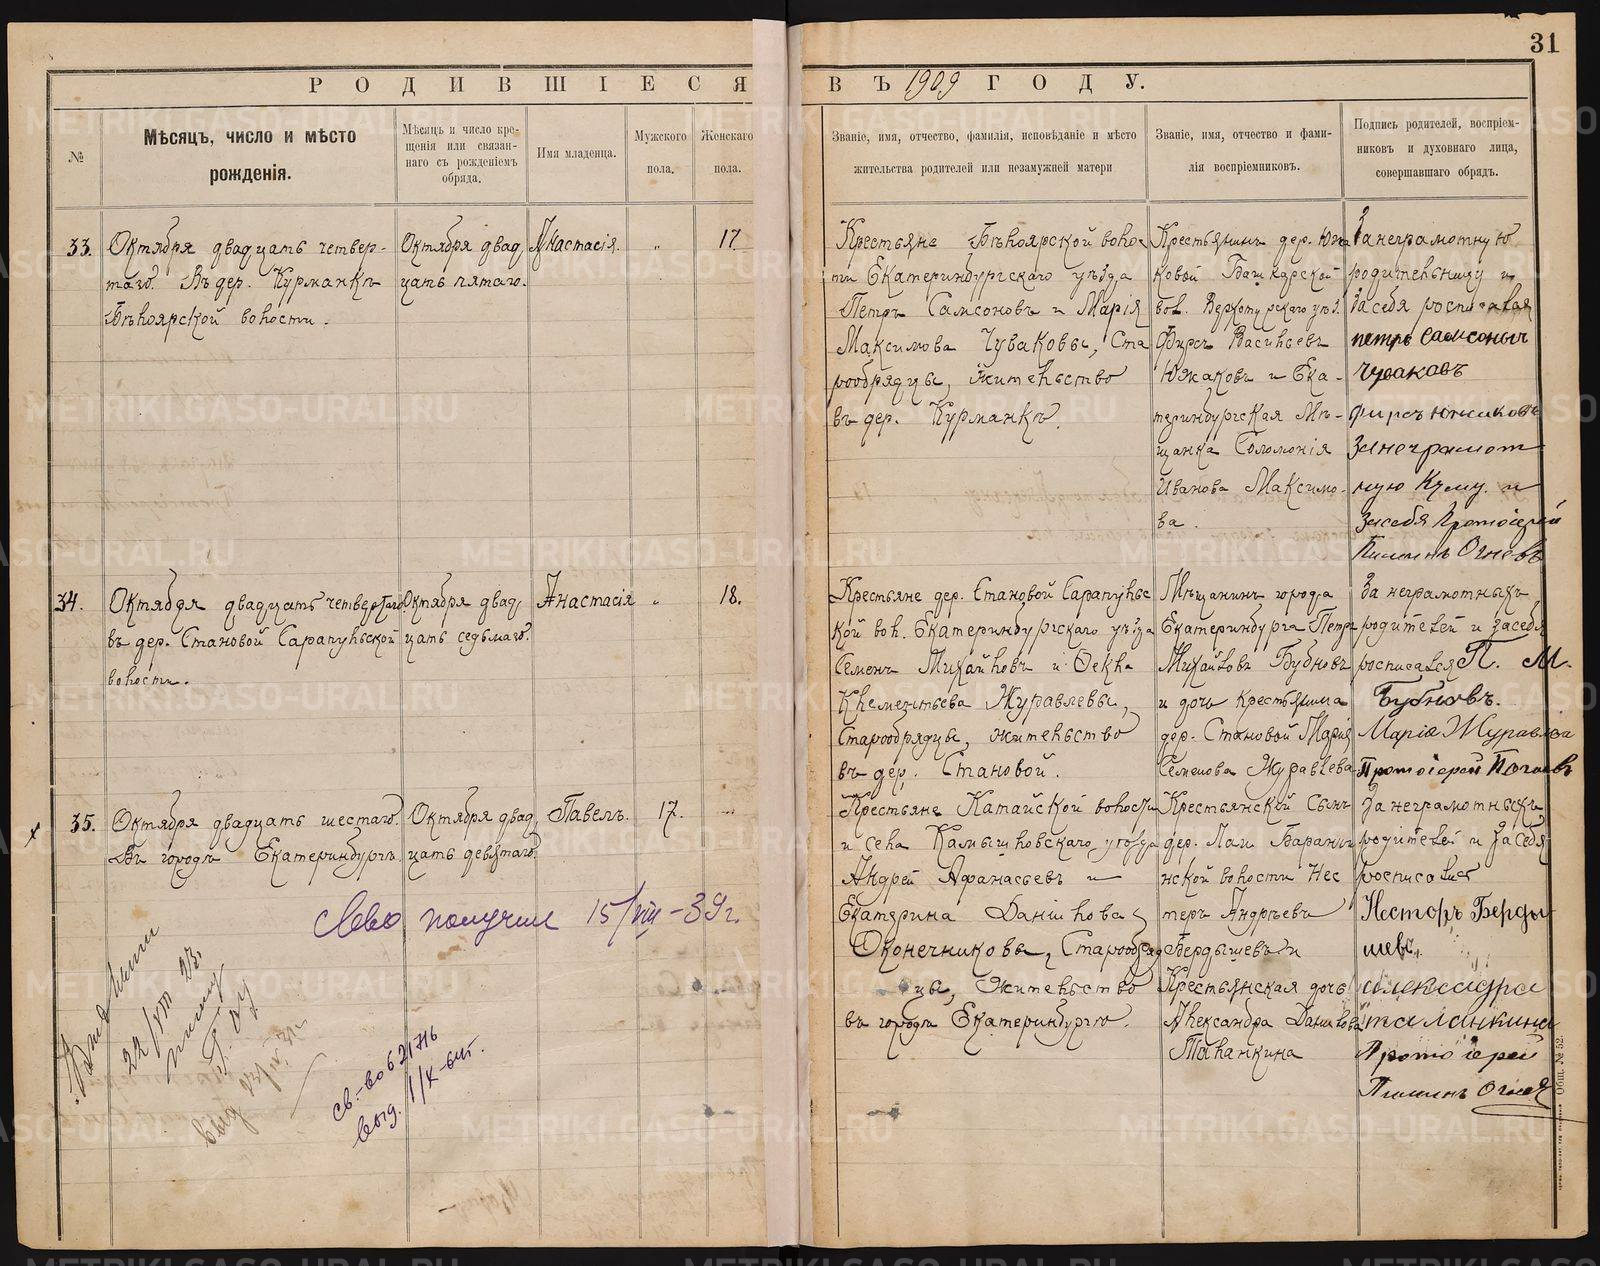 31
РОДИВШІЕСЯ ВЪ 1909 ГОДУ.
№
Мѣсяцъ, число и мѣсто
рожденія.
Мѣсяцъ и число кре-
щенія или связан-
наго съ рожденіемъ
обряда.
Имя младенца.
Мужского
пола.
Женскаго
пола.
Званіе, имя, отчество, фамилія, исповѣданіе и мѣсто
жительства родителей или незамужней матери
Званіе, имя, отчество и фами-
лія воспріемниковъ.
Подпись родителей, воспріем-
никовъ и духовнаго лица,
совершавшаго обрядъ.
33.
Октября двадцать четвер-
таго. Въ дер. Курманкѣ
Бѣлоярской волости.
Октября двад
цать пятаго.
Анастасія.
"
17
Крестьяне Бѣлоярской волос
ти Екатеринбургскаго уѣзда
Петръ Самсоновъ и Марія
Максимова Чуваковы, Ста
рообрядцы, жительство
въ дер. Курманкѣ.
Крестьянинъ дер. Южа
ковой Башкарской
вол. Верхотурскаго уѣз.
Фирсъ Васильевъ
Южаковъ и Ека-
теринбургская Мѣ-
щанка Соломонія
Иванова Максимо-
ва.
За неграмотную
родительницу и
за себя росписался
петръ Самсоныч
Чуваковъ
Фирсъ Южаковъ
За неграмот
ную Куму и
за себя Протоіерей
Пименъ Огневъ
34.
Октября двадцать четвертаго
въ дер. Становой Сарапульской
волости.
Октября двад
цать седьмаго.
Анастасія
"
18.
Крестьяне дер. Становой Сарапульс
кой вол. Екатеринбургскаго уѣзда
Семенъ Михайловъ и Фекла
Клементьева Журавлевы,
Старообрядцы, жительство
въ дер. Становой.
Мѣщанинъ города
Екатеринбурга Петръ
Михайловъ Бубновъ
и дочь крестьянина
дер. Становой Марія
Семенова Журавлева
За неграмотныхъ
родителей и за себя
росписался П. М.
Бубновъ.
Марія Журавлева
Протоіерей
35.
Октября двадцать шестаго.
Въ городѣ Екатеринбургѣ
Октября двад
цать девятаго.
Павелъ.
17.
Крестьяне Катайской волости
и села Камышловскаго уѣзда
Андрей Афанасьевъ и
Екатерина Данилова
Оконечниковы, Старообряд
цы, жительство
въ городѣ Екатеринбургѣ.
Крестьянскій сынъ
дер. Баранди
нской волости Нес
теръ Андреевъ
Бердышевъ и
Крестьянская дочь
Александра Данилова
Таланкина
За неграмотныхъ
родителей и за себя
росписался
Несторъ Берды
шевъ
Александра
таланкина
Протоіерей
Пименъ Огневъ
получил 15/VIII-39г.
22/VIII
св.-во 621716
выд. 1/X-
Общ. № 52.